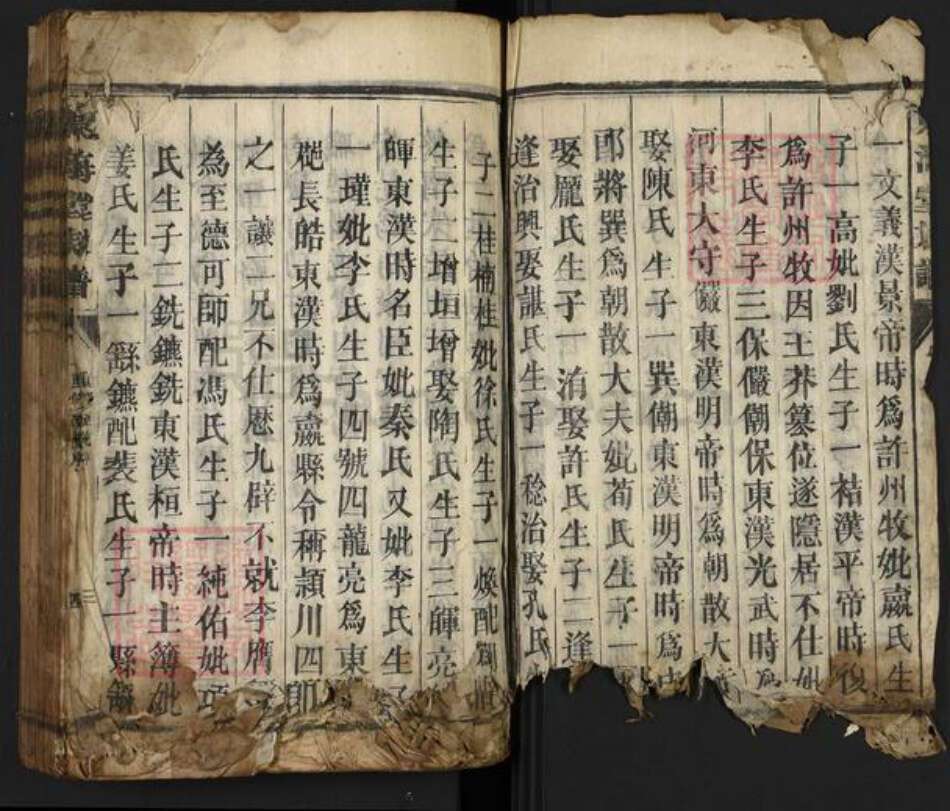 一文義漢景帝時爲許州牧妣嬴氏生
子一高妣劉氏生子一桔漢平帝時後
爲許州牧因王莽篡位遂隱居不仕妣
李氏生子三保儼鄘保東漢光武時爲
河東大守儼東漢明帝時爲朝散大
娶陳氏生子一巽鄘東漢明帝時爲
郎將巽爲朝散大夫妣荀氏生子一
娶龐氏生子一洧娶許氏生子二逢
逢治興娶諶氏生子一稔治娶孔氏
子二桂楠桂妣徐氏生子一煥配
生子二增垣增娶陶氏生子三暉亮
暉東漢時名臣妣秦氏又妣李氏生子
一瑾妣李氏生子四號四龍亮爲東
龍長皓東漢時爲嬴縣令稱潁川四
之一讓二兄不仕歷九辟不就李膺
為至德可師配馮氏生子一純佑妣
氏生子二銑鑣銑東漢桓帝時主簿妣
姜氏生子一繇鑣配裴氏生子一縣
堂
譜
四